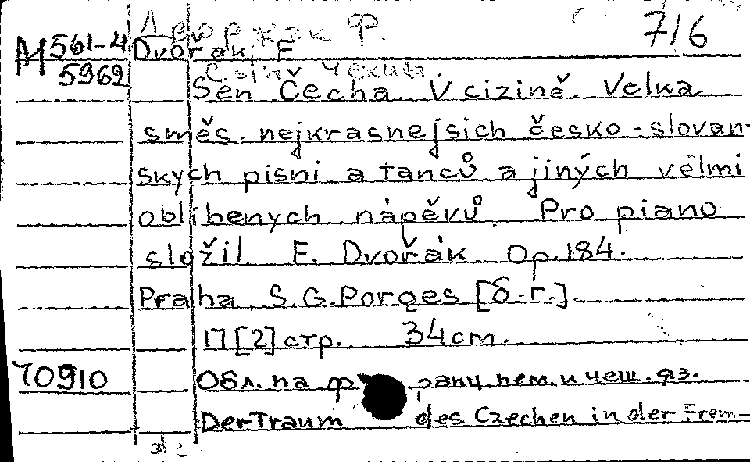 Дворжак Ф.
716
М 561-4
5962
Dvořak, F
Sen Čecha V cizině. Velka
směs nejkrasnejsich česko-slovan-
skych pisni a tanců a jiných vělmi
oblíbenych nápěvů. Pro piano
složil F. Dvořák Op.184.
Praha S.G.Porges [б.г.]
17[2]стр. 34cm.
70910
Обл. на нем. и чеш. яз.
Der Traum des Czechen in der Frem-